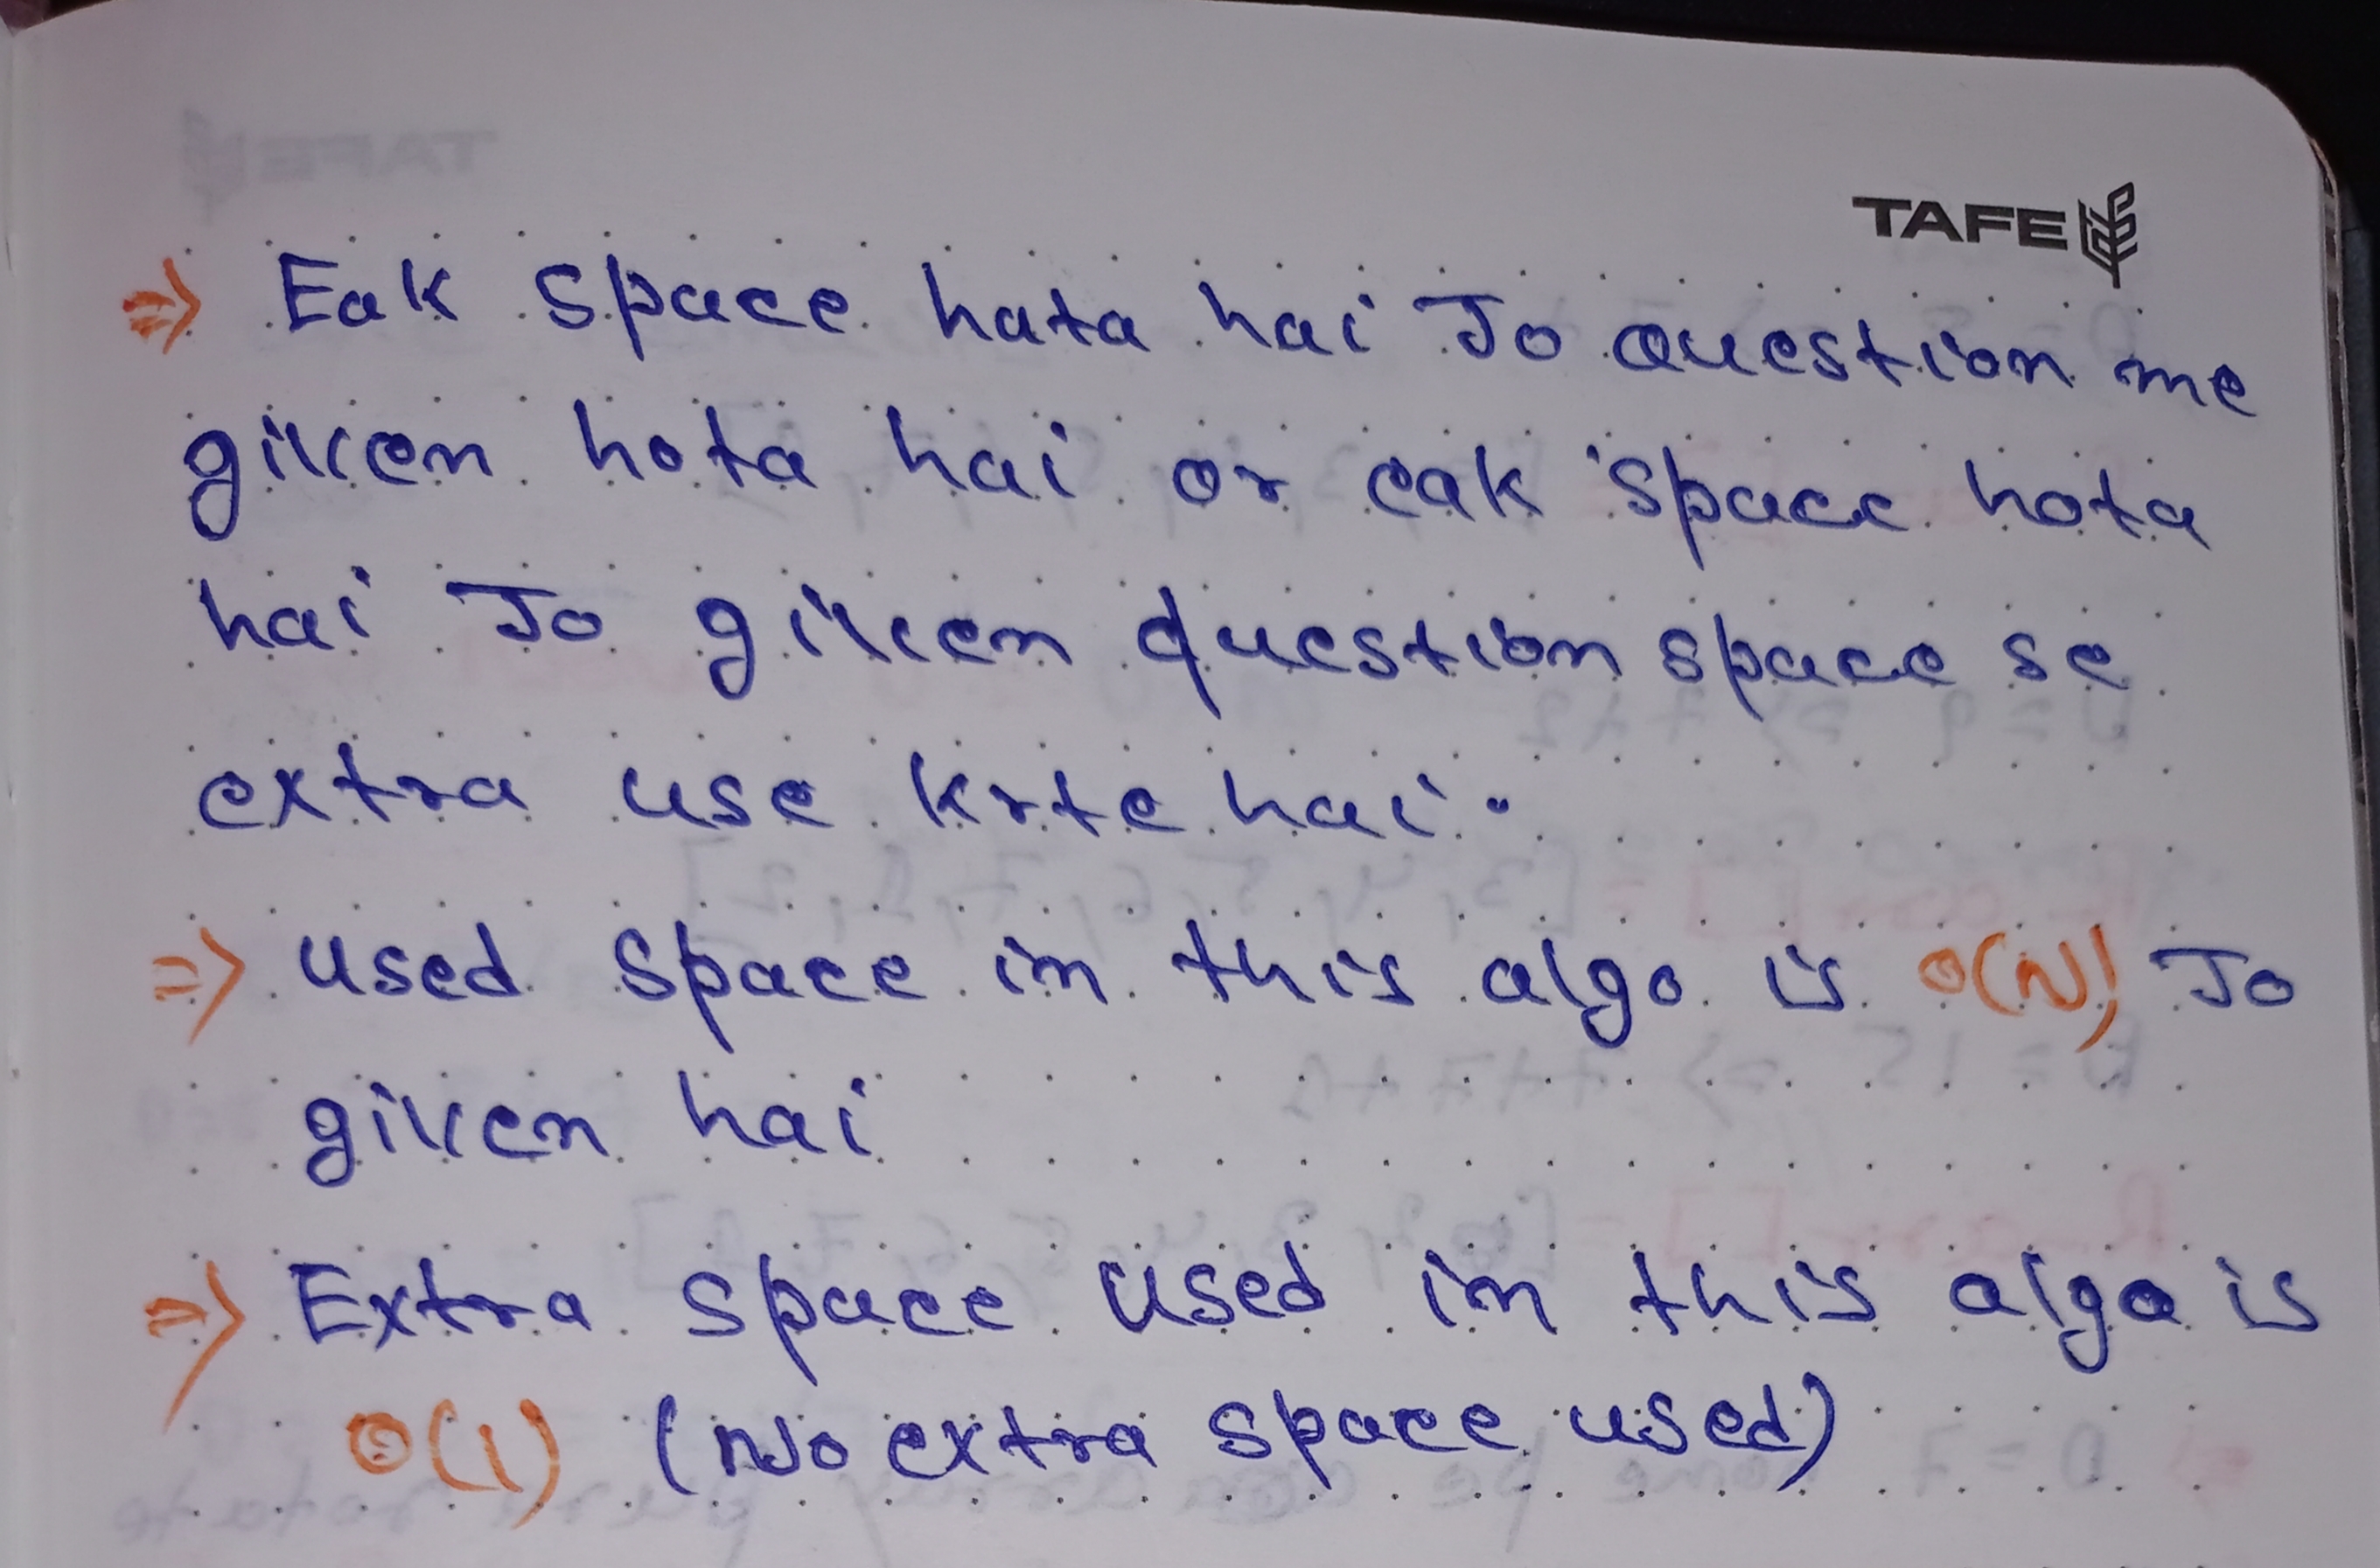 TAFE
⇒ Eak space hata hai Jo question me
given hota hai or eak space hota
hai Jo given question space se
extra use krte hai.
⇒ used space in this algo is O(N) Jo
given hai
⇒ Extra space used in this algo is
O(1) (No extra space used)